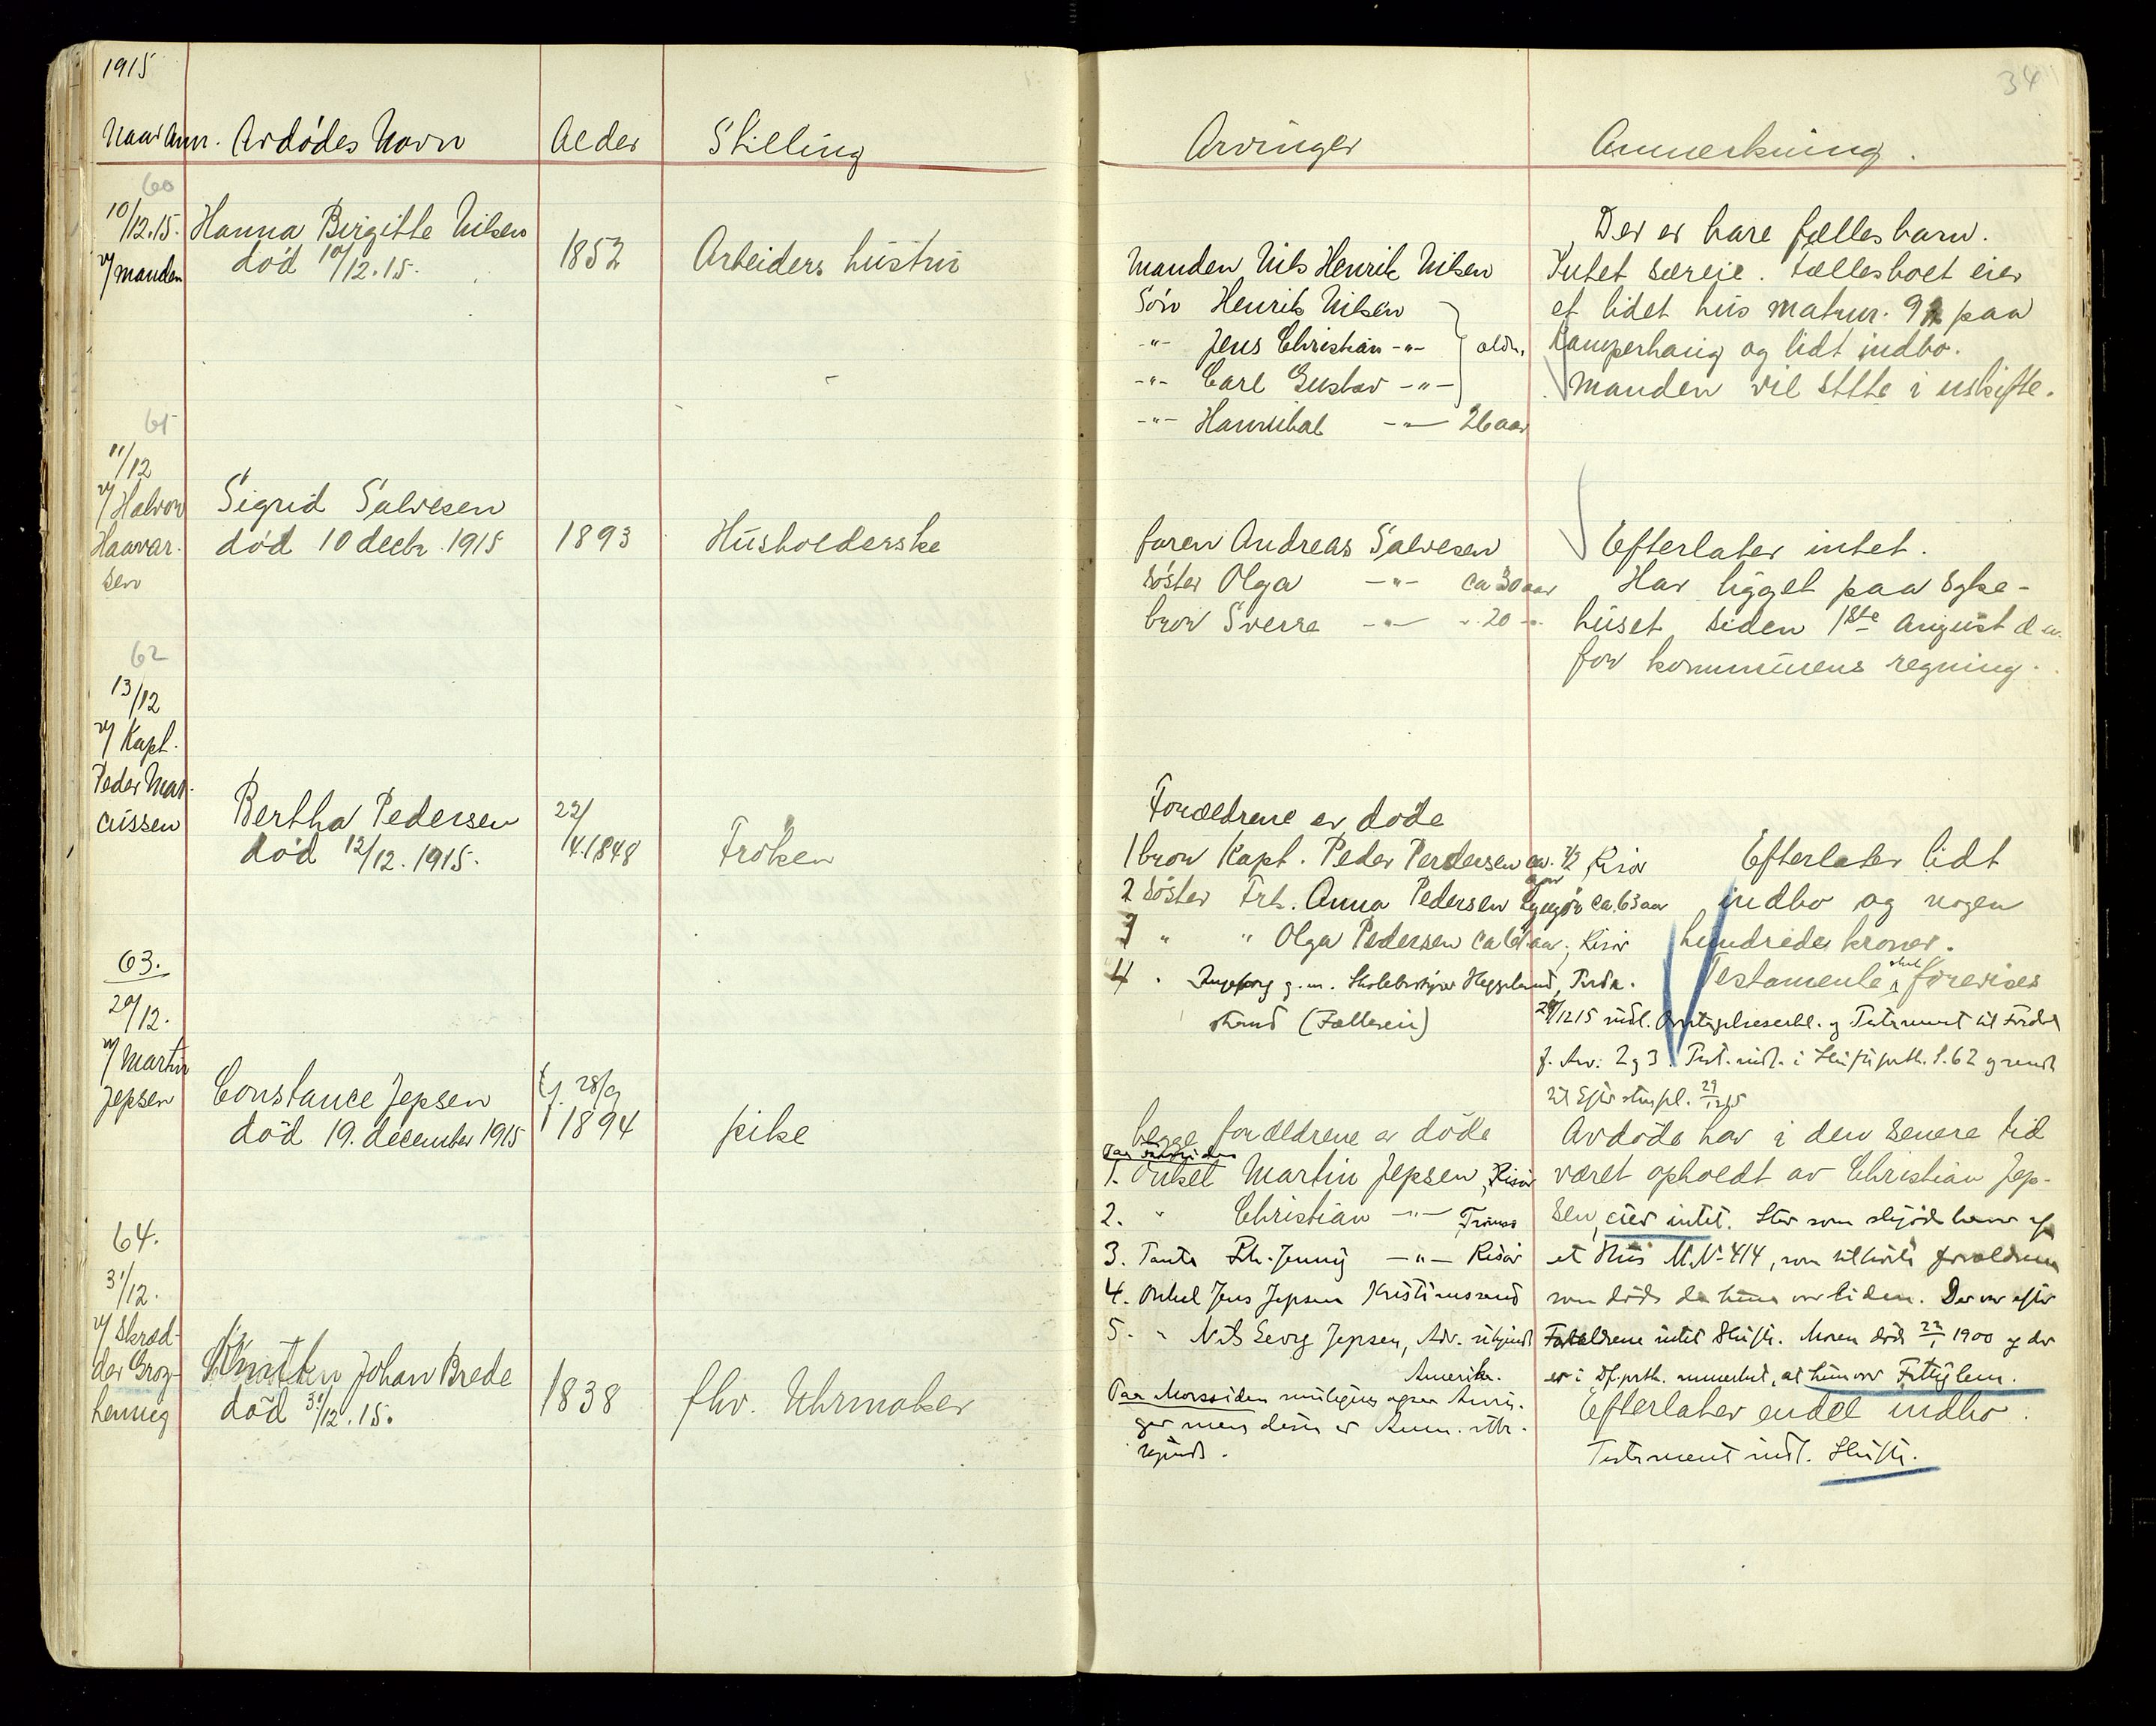 1915
34
Naar Anm. Avdödes Navn Alder Stilling
Arvinger Anmerkning.
60
10/12.15.
v/ manden
Hanna Birgitte Nilsen
död 10/12.15.
1852
Arbeiders hustru
Manden Nils Henrik Nilsen
Sön Henrik Nilsen
-"- Jens Christian -"-
-"- Carl Gustav -"-
-"- Hannibal -"- 26 aar
Der er bare fælles barn.
Intet særeie. Fællesboet eier
et lidet hus matnr. paa
Kamperhaug og lidt indbo.
Manden vil sitte i uskifte.
61
11/12
v/ Halvor
Haavar-
sen
Sigrid Salvesen
död 10 decbr. 1915
1893
Husholderske
faren Andreas Salvesen
söster Olga -"- ca 30 aar
bror Sverre -"- 20
Efterlater intet.
Har ligget paa Syke-
huset siden 1ste august d. a.
for kommunens regning.
62
13/12
v/ Kapt.
Peder Mar-
cussen
Bertha Pedersen
död 12/12. 1915.
22/
/4.1848
Fröken
Forældrene er döde
1 bror Kapt. Peder Perdersen Risör
2 söster Frk. Anna Pedersen Lyngör ca. 63 aar
3 " " Olga Pedersen Risör
4 " Ingeborg g. m. Skolebestyrer Heggelund,
strand (Fælleseie)
Efterlater lidt
indbo og nogen
hundrede kroner.
Testamente skal forevises
til
f. Arv. 2 g 3. S. 62
63.
20/12.
v/ Martin
Jepsen
Constance Jepsen
död 19. december 1915
f. 28/9
1894
pike
begge forældrene er döde
Paa farssiden
1. Onkel Martin Jepsen, Risör
2. " Christian -"- Tromsö
3. Tante Frk. Jenny -"- Risör
4. Onkel Jens Jepsen Kristianssand
5. " Nils Georg Jepsen, Adr. ukjendt
Amerika.
Paa Morssiden muligens ogsaa Arvin-
ger mens disse er Anm.
ukjendt.
Avdöde har i den senere tid
været opholdt av Christian Jep-
sen, eier intet. Staar som
et Hus M.N. 414, som tilhörte forældrene
som döde da hun var liden. Der var efter
Forældrene intet Skifte. Moren död 1900 og der
er i anmerket, at hun var Fattiglem.
64.
31/12.
v/ Skræd-
der Grog-
henning
Johan Brede
död 31/12.15.
1838
fhv. Uhrmaker
Efterlater endel indbo.
Testament indl. Skifte.